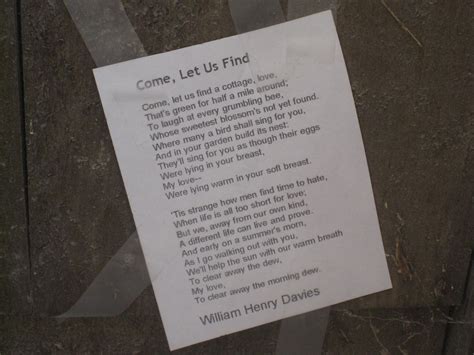 Come, Let Us Find
Come, let us find a cottage, love,
That's green for half a mile around;
To laugh at every grumbling bee,
Whose sweetest blossom's not yet found.
Where many a bird shall sing for you,
And in your garden build its nest:
They'll sing for you as though their eggs
Were lying in your breast,
My love--
Were lying warm in your soft breast.
'Tis strange how men find time to hate,
When life is all too short for love;
But we, away from our own kind,
A different life can live and prove.
And early on a summer's morn,
As I go walking out with you,
We'll help the sun with our warm breath
To clear away the dew,
My love,
To clear away the morning dew.
William Henry Davies